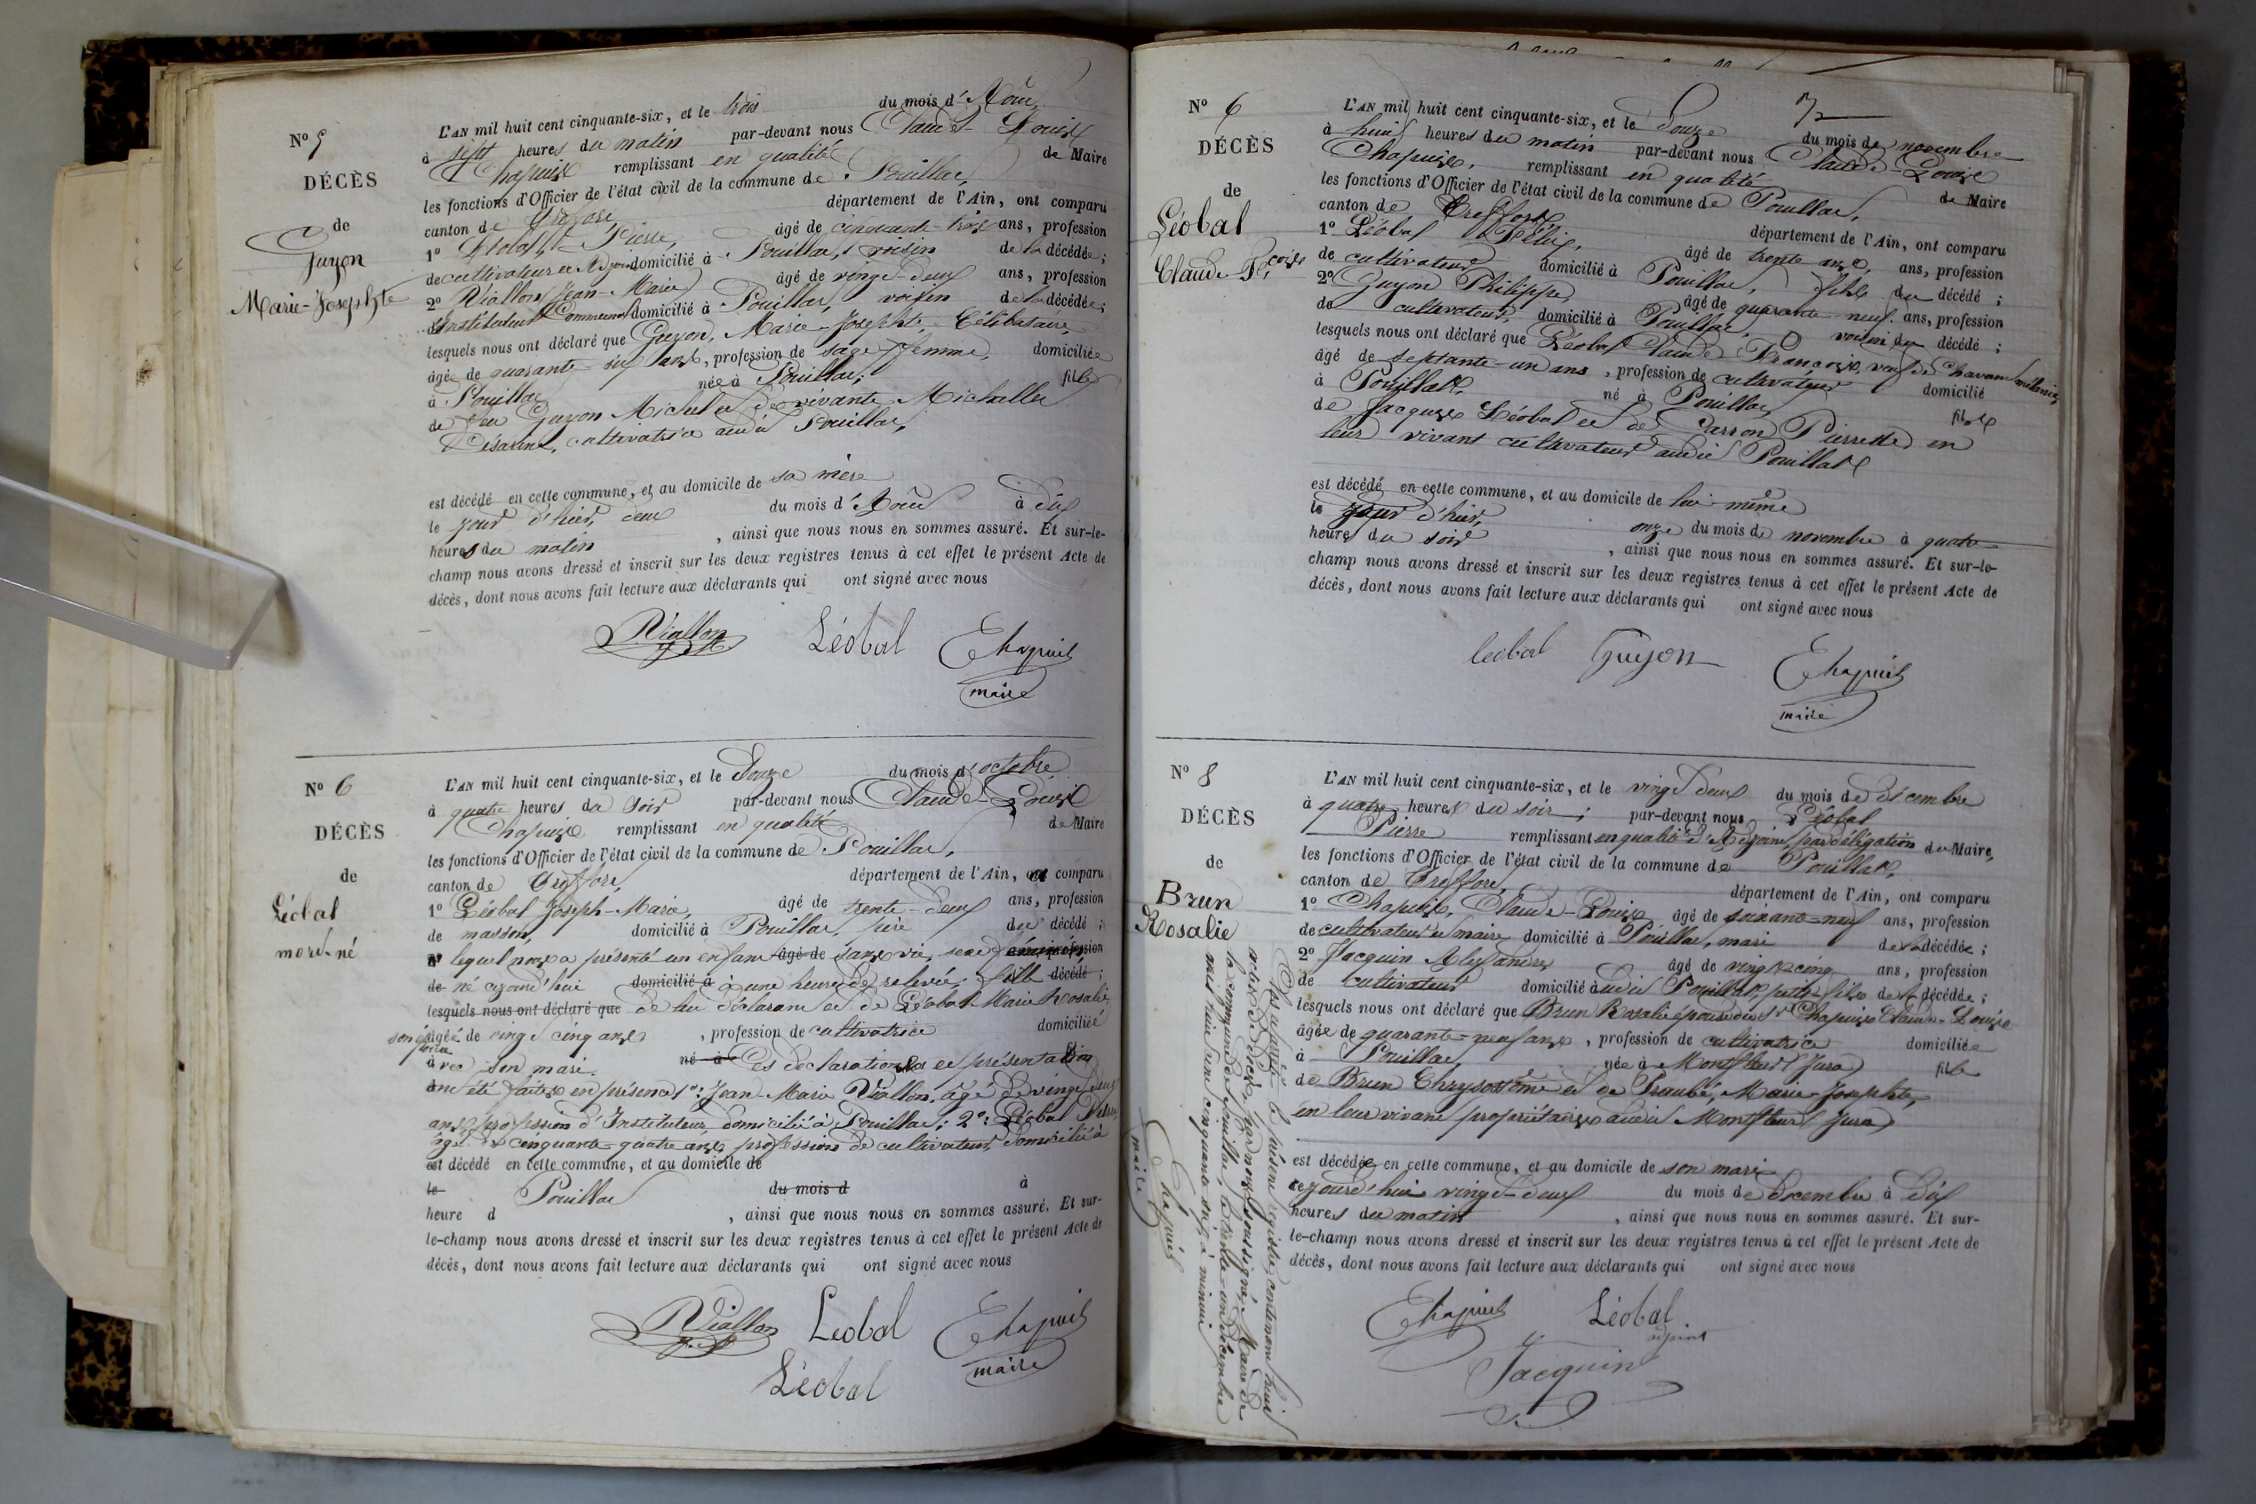 N° 5
DÉCÈS
de
Guyon
Marie-Josephte
L'AN mil huit cent cinquante-six, et le trois du mois d'Août
à sept heures du matin par-devant nous Claude-Louis
Chapuis remplissant en qualité de Maire
les fonctions d'Officier de l'état civil de la commune de Pouillat,
canton de Treffort, département de l'Ain, ont comparu
1° Léobal Pierre, âgé de cinquante-trois ans, profession
de cultivateur et adjoint domicilié à Pouillat, voisin de la décédée ;
2° Viallon Jean-Marie âgé de vingt-deux ans, profession
d'Instituteur Communal domicilié à Pouillat, voisin de la décédée ;
lesquels nous ont déclaré que Guyon, Marie-Josephte, Célibataire
âgée de quarante-six ans, profession de sage-femme, domiciliée
à Pouillat née à Pouillat, fille
de feu Guyon Michel et de vivante Michallet
Césarine, cultivatrice audit Pouillat,
est décédé en cette commune, et au domicile de sa mère
le jour d'hier, deux du mois d'Août à dix
heures du matin , ainsi que nous nous en sommes assuré. Et sur-le-
champ nous avons dressé et inscrit sur les deux registres tenus à cet effet le présent Acte de
décès, dont nous avons fait lecture aux déclarants qui ont signé avec nous
Viallon Léobal Chapuis
maire
N° 6
DÉCÈS
de
Léobal
mort-né
L'AN mil huit cent cinquante-six, et le Douze du mois d'octobre
à quatre heures du soir par-devant nous Claude-Louis
Chapuis remplissant en qualité de Maire
les fonctions d'Officier de l'état civil de la commune de Pouillat,
canton de Treffort, département de l'Ain, ont comparu
1° Léobal Joseph-Marie, âgé de trente-deux ans, profession
de maçon, domicilié à Pouillat, père du décédé ;
lequel nous a présenté un enfant âgé de sans vie, sexe profession
de né aujourd'hui domicilié à à une heure de relevée, fille décédé ;
lesquels nous ont déclaré que de lui déclarant et de Léobal Marie Rosalie
son épouse âgée de vingt cinq ans , profession de cultivatrice domiciliée
avec son mari. né à Ces déclarations et présentation
ont été faites en présence 1°: Jean-Marie Viallon, âgé de vingt deux
ans, profession d'Instituteur, domicilié à Pouillat ; 2°: Léobal Pierre,
âgé de cinquante-quatre ans, profession de cultivateur, domicilié à
est décédé en cette commune, et au domicile de
le Pouillat du mois d à
heure d , ainsi que nous nous en sommes assuré. Et sur-
le-champ nous avons dressé et inscrit sur les deux registres tenus à cet effet le présent Acte de
décès, dont nous avons fait lecture aux déclarants qui ont signé avec nous
Viallon Léobal Chapuis
Léobal maire
N° 6
DÉCÈS
de
Léobal
Claude Fçois
7
L'AN mil huit cent cinquante-six, et le Douze du mois de novembre
à huit heures du matin par-devant nous Claude-Louis
Chapuis. remplissant en qualité de Maire
les fonctions d'Officier de l'état civil de la commune de Pouillat,
canton de Treffort, département de l'Ain, ont comparu
1° Léobal Félix, âgé de trente ans, ans, profession
de cultivateur domicilié à Pouillat, fils du décédé ;
2° Guyon Philippe, âgé de quarante-neuf ans, profession
de cultivateur, domicilié à Pouillat, voisin du décédé ;
lesquels nous ont déclaré que Léobal Claude-François, veuf de
âgé de septante-un ans , profession de cultivateur domicilié
à Pouillat, né à Pouillat, fils
de Jacques Léobal et de Carron Pierrette en
leur vivant cultivateurs audit Pouillat
est décédé en cette commune, et au domicile de lui-même
le jour d'hier, onze du mois de novembre à quatre
heures du soir , ainsi que nous nous en sommes assuré. Et sur-le-
champ nous avons dressé et inscrit sur les deux registres tenus à cet effet le présent Acte de
décès, dont nous avons fait lecture aux déclarants qui ont signé avec nous
leobal Guyon Chapuis
maire
N° 8
DÉCÈS
de
Brun
Rosalie
L'AN mil huit cent cinquante-six, et le vingt deux du mois de décembre
à quatre heures du soir ; par-devant nous Léobal
Pierre remplissant en qualité d'Adjoint, par délégation du Maire,
les fonctions d'Officier de l'état civil de la commune de Pouillat,
canton de Treffort, département de l'Ain, ont comparu
1° Chapuis, Claude-Louis âgé de soixante-neuf ans, profession
de cultivateur et maire domicilié à Pouillat, mari de la décédée ;
2° Jacquin Alexandre, âgé de vingt-cinq ans, profession
de cultivateur domicilié audit Pouillat, petit-fils de la décédée ;
lesquels nous ont déclaré que Brun Rosalie épouse du Sr Chapuis Claude-Louis
âgée de quarante-neuf ans , profession de cultivatrice domiciliée
à Pouillat née à Montfleur (Jura) fille
de Brun Chrysostôme et de Josephte,
en leur vivant propriétaires audit Montfleur (Jura)
est décédée en cette commune, et au domicile de son mari
cejourd'hui vingt-deux du mois de décembre à dix
heures du matin , ainsi que nous nous en sommes assuré. Et sur-
le-champ nous avons dressé et inscrit sur les deux registres tenus à cet effet le présent Acte de
décès, dont nous avons fait lecture aux déclarants qui ont signé avec nous
Chapuis Léobal
adjoint
Jacquin
Clos et arrêté le présent registre, contenant huit
actes de décès, par nous soussigné, Maire de
la commune de Pouillat, le trente-un décembre
mil huit cent cinquante-six, à minuit
Chapuis
maire